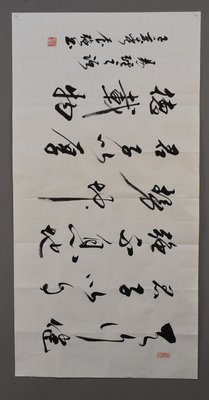 天行健
君子以自
強不息地
勢坤
君子以厚
德載物
易經之語